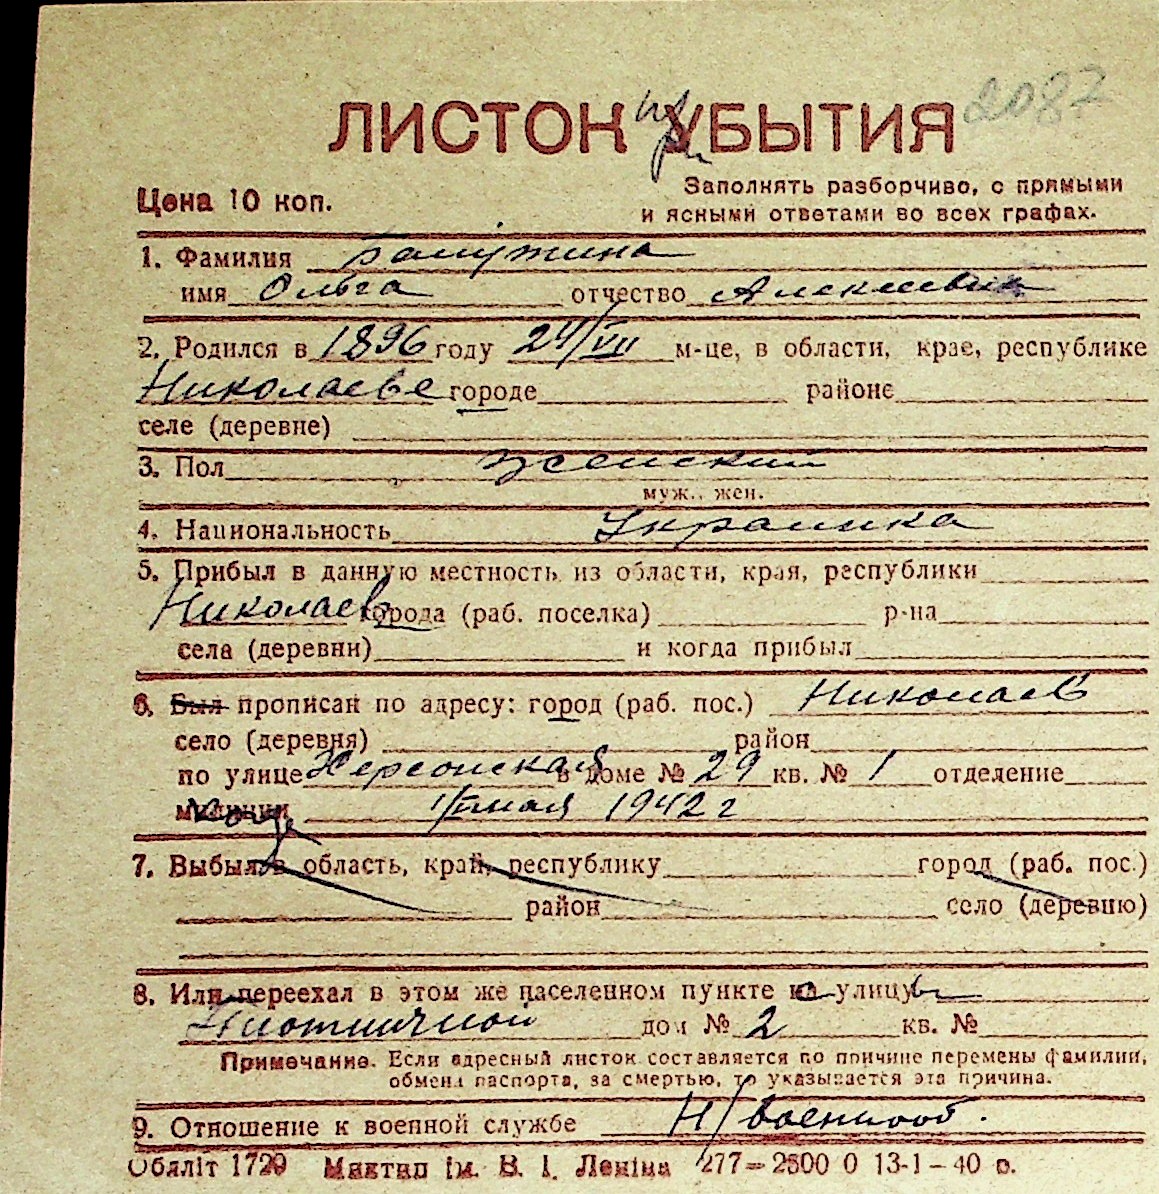 ЛИСТОК УБЫТИЯ 2087
при
Цена 10 коп.
Заполнять разборчиво, с прямыми
и ясными ответами во всех графах.
1. Фамилия
имя Ольга отчество Алексеевна
2. Родился в 1896 году 24/VII м-це, в области, крае, республике
Николаеве городе районе
селе (деревне)
3. Пол женский
муж., жен.
4. Национальность Украинка
5. Прибыл в данную местность из области, края, республики
Николаев города (раб. поселка) р-на
села (деревни) и когда прибыл
6. Был прописан по адресу: город (раб. пос.) Николаев
село (деревня) район
по улице Херсонская в доме № 29 кв. № 1 отделение
милиции мая 1942 г
7. Выбыл в область, край, республику город (раб. пос.)
район село (деревню)
8. Или переехал в этом же населенном пункте на улицу
дом № 2 кв. №
Примечание. Если адресный листок составляется по причине перемены фамилии,
обмена паспорта, за смертью, то указывается эта причина.
9. Отношение к военной службе Н/военнооб.
Обліт 1729 Мактип ім. В. І. Леніна 277—2500 0 13-1-40 р.